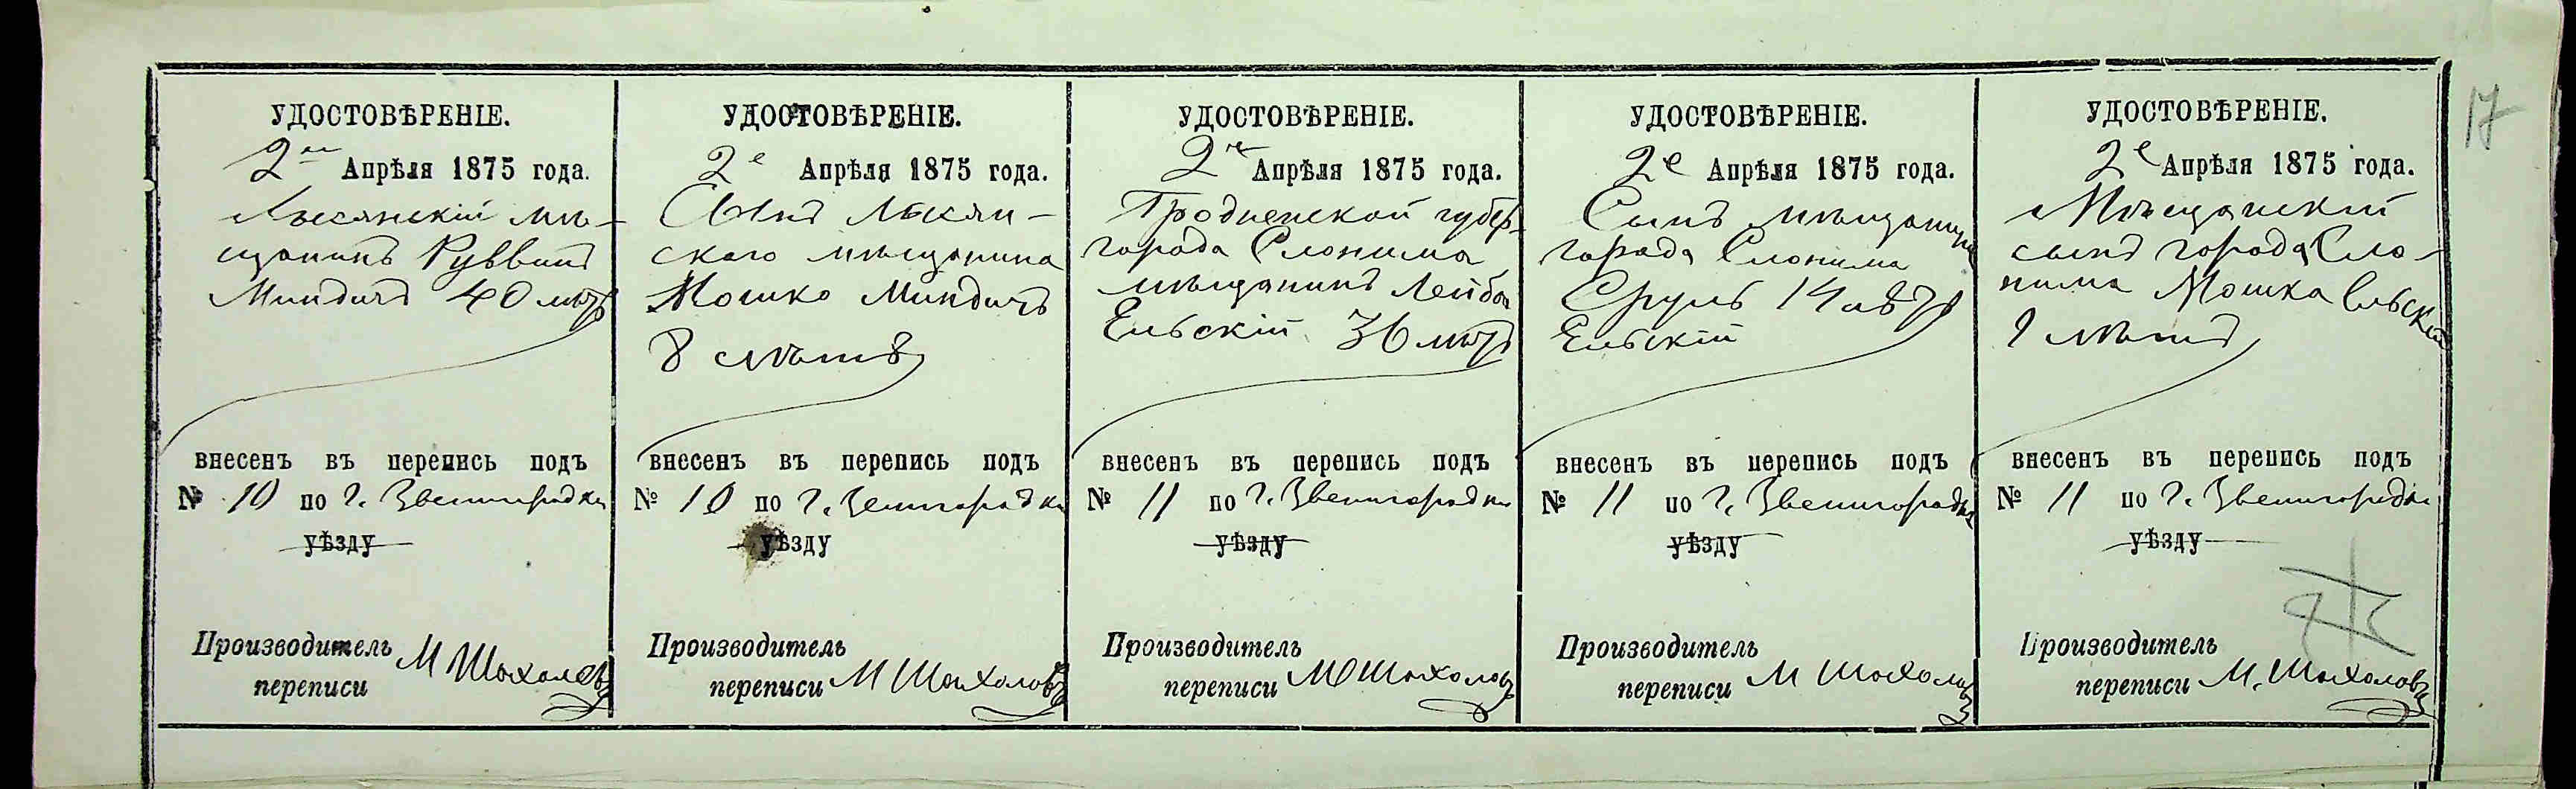 17
УДОСТОВѢРЕНІЕ.
2го Апрѣля 1875 года.
Лысянскій мѣ-
щанинъ Руввинъ
Миндичъ 40 лѣтъ
внесенъ въ перепись подъ
№ 10 по г. Звенигородки
уѣзду
Производитель
переписи М Шохаловъ
УДОСТОВѢРЕНІЕ.
2е Апрѣля 1875 года.
Сынъ Лысян-
ского мѣщанина
Мошко Миндичъ
8 лѣтъ
внесенъ въ перепись подъ
№ 10 по г. Зенигородки
уѣзду
Производитель
переписи М Шохоловъ
УДОСТОВѢРЕНІЕ.
2е Апрѣля 1875 года.
Гродненской губер-
города Слонима
мѣщанинъ Лейба
Ельскій 36 лѣтъ
внесенъ въ перепись подъ
№ 11 по г. Звенигородки
уѣзду
Производитель
переписи М Шохоловъ
УДОСТОВѢРЕНІЕ.
2е Апрѣля 1875 года.
Сынъ мѣщанина
города Слонима
Сруль 14 лѣтъ
Ельскій
внесенъ въ перепись подъ
№ 11 по г. Звенигородки
уѣзду
Производитель
переписи М Шохоловъ
УДОСТОВѢРЕНІЕ.
2е Апрѣля 1875 года.
Мѣщанскій
сынъ города Сло-
нима Мошка Ельскій
лѣтъ
внесенъ въ перепись подъ
№ 11 по г. Звенигородки
уѣзду
Производитель
переписи М. Шохоловъ